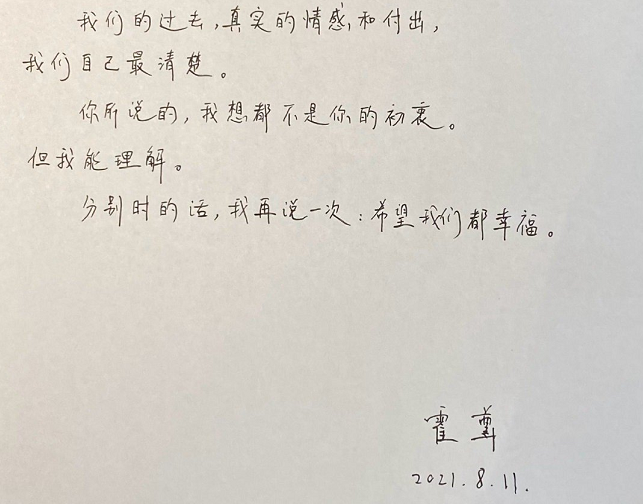 我们的过去,真实的情感和付出,
我们自己最清楚。
你所说的,我想都不是你的初衷。
但我能理解。
分别时的话,我再说一次:希望我们都幸福。
霍尊
2021.8.11.